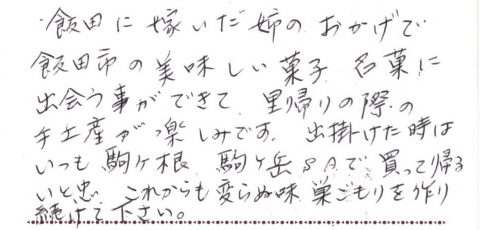 飯田に嫁いだ姉のおかげで
飯田市の美味しい菓子 名菓に
出会う事ができて 里帰りの際の
手土産が楽しみです。出掛けた時は
いつも駒ヶ根 駒ヶ岳SAで買って帰る
いと忠 これからも変らぬ味 巣ごもりを作り
続けて下さい。